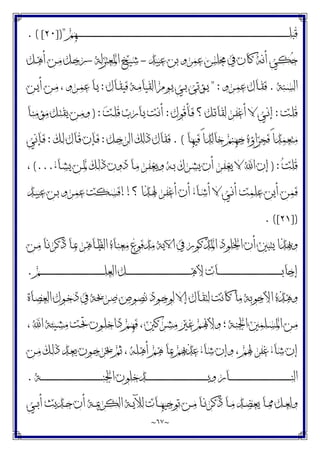 قِبَلِهِمْ"([٢٠]) .
حُكي أنه كان في مجلس عمرو بن عبيد - شيخ المعتزلة - رجل من أهل
السنة . فقال عمرو : " يؤتى بي يوم القيامة فيقال : يا عمرو ، من أين
قلت : إني لا أغفر لقاتل ؟ فأقول : أنت يا رب قلت : ( ومن يقتل مؤمنا
متعمداً فجزاؤه جهنم خالداً فيها ) . فقال ذلك الرجل : فإن قال لك : فإني
قلتُ : ( إن الله لا يغفر أن يشرك به ويغفر ما دون ذلك لمن يشاء . . . ) ،
فمن أين علمت أني لا أشاء أن أغفر لهذا ؟ ! ! فسكت عمرو بن عبيد
([٢١]) .
وبهذا يتبين أن الخلود المذكور في الآية مدفوع معناه الظاهر بما ذكرنا من
إجابات لأهل العلم .
وهذه الأجوبة ما كانت لتقال إلا لوجود نصوص صريحة في دخول العصاة
من المسلمين الجنة ؛ ولأنهم غير مشركين ، فهم داخلون تحت مشيئة الله ،
إن شاء غفر لهم ، وإن شاء عذبهم بما هم أهله ، ثم يخرجون بعد ذلك من
النار ويدخلون الجنة .
ولعل مما يعضد ما ذكرنا من توجيهات للآية الكريمة أن حديث أبي
~٦٧~